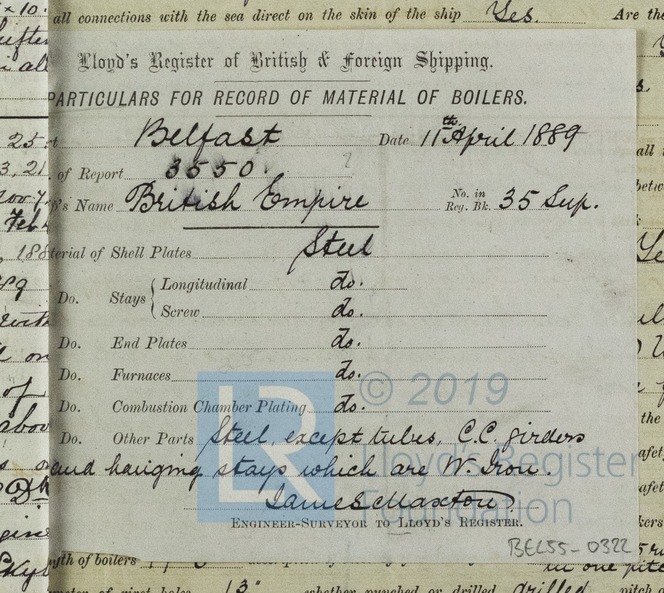 all connections with the sea direct on the skin of the ship Yes. Are the
Lloyd's Register of British & Foreign Shipping.
PARTICULARS FOR RECORD OF MATERIAL OF BOILERS.
Belfast Date 11th April 1889
of Report 3550.
Name British Empire No. in Reg. Bk. 35 Sup.
terial of Shell Plates Steel
Do. Stays { Longitudinal do.
Screw do.
Do. End Plates do.
Do. Furnaces do.
Do. Combustion Chamber Plating do.
Do. Other Parts Steel, except tubes, C.C. girders
and hanging stays which are W. Iron.
James Maxton
ENGINEER-SURVEYOR TO LLOYD'S REGISTER.
LR © 2019
Lloyd's Register
Foundation
BEL55-0322
of boilers
13" whether punched or drilled drilled